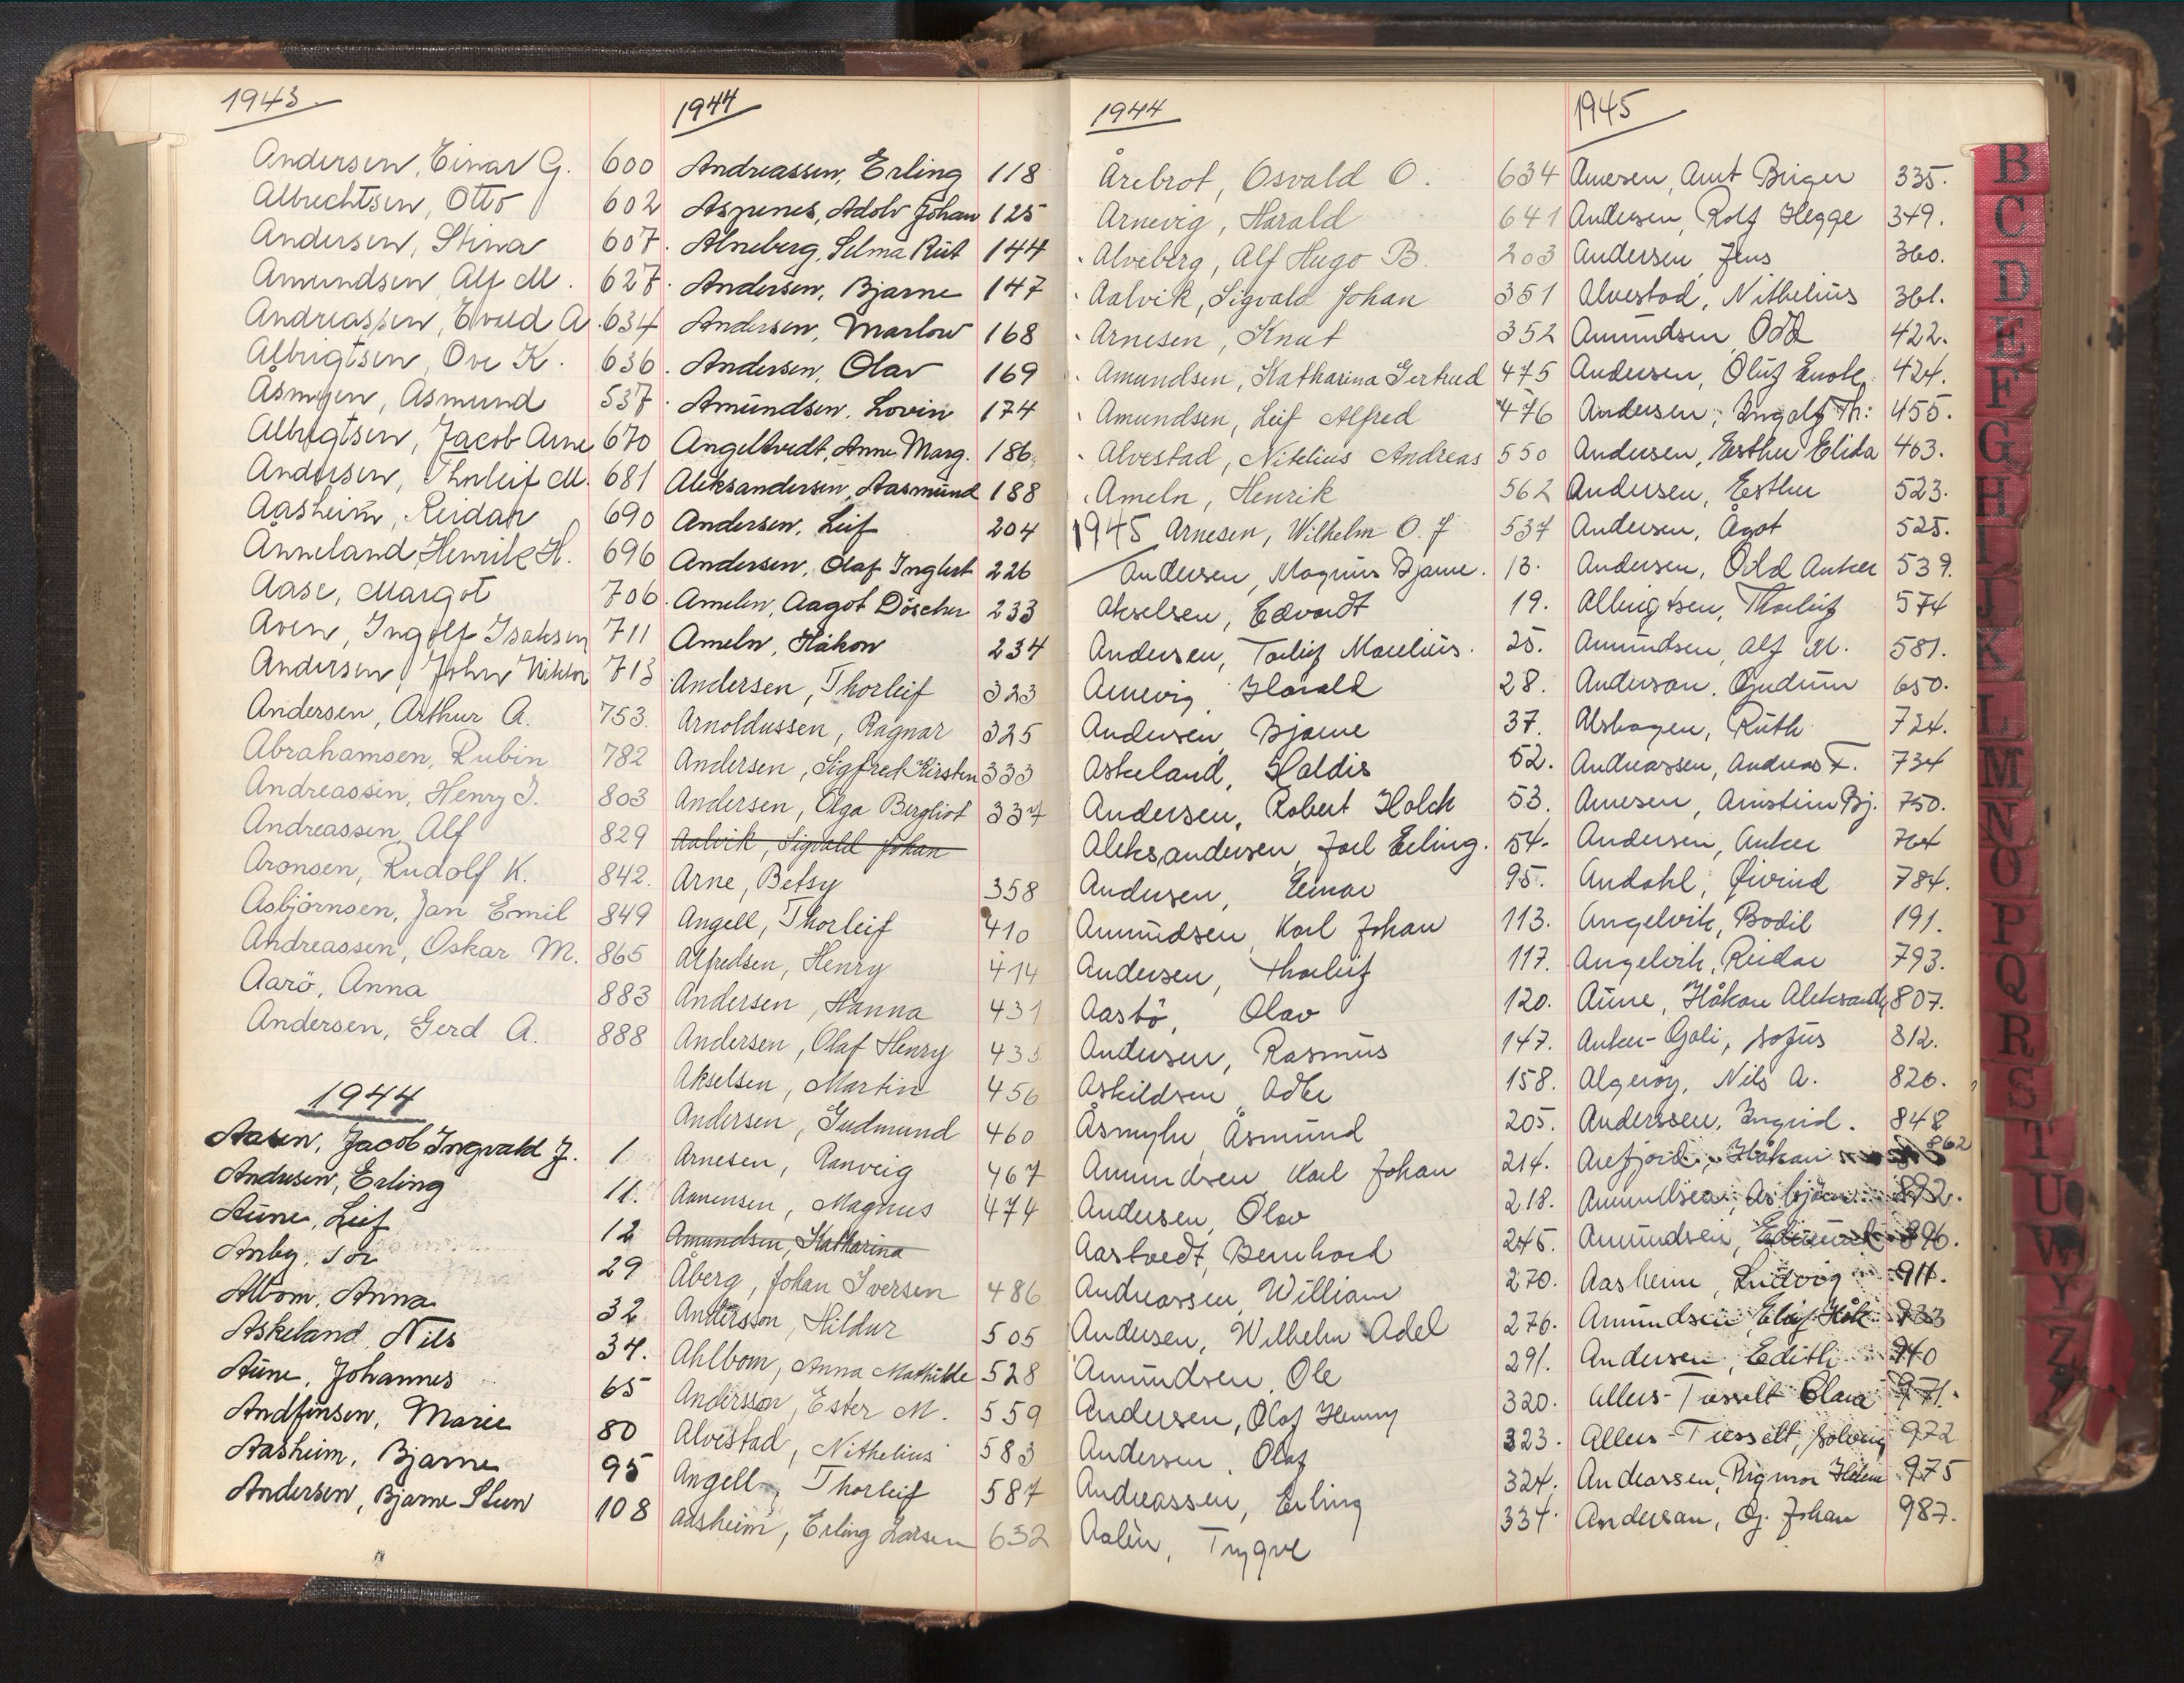 1943
Andersen, Einar G. 600
Albrechtsen, Otto 602
Andersen, Stina 607
Amundsen, Alf M. 627
Andreassen, Evald A. 634
Albrigtsen, Ove K. 636
Åsmyen, Åsmund 537
Albrigtsen, Jacob Arne 670
Andersen, Thorleif M. 681
Aasheim, Reidar 690
Ånneland, Henrik H. 696
Aase, Margot 706
Aven, Ingolf Isaksen 711
Andersen, John Viktor 713
Andersen, Arthur A. 753
Abrahamsen, Rubin 782
Andreassen, Henry J. 803
Andreassen, Alf 829
Aronsen, Rudolf K. 842
Asbjörnsen, Jan Emil 849
Andreassen, Oskar M. 865
Aarö, Anna 883
Andersen, Gerd A. 888
1944
Aasen, Jacob Ingvald J. 1
Andersen, Erling 11.
Aune, Leif 12
Anby, Tor 29
Albom, Anna 32
Askeland, Nils 34.
Aune, Johannes 65
Andfinsen, Marie 80
Aasheim, Bjarne 95
Andersen, Bjarne Steen 108
1944
Andreassen, Erling 118
Aspenes, Adolv Johan 125
Alneberg, Selma Rut 144
Andersen, Bjarne 147
Andersen, Marlow 168
Andersen, Olav 169
Amundsen, Lovin 174
Angeltvedt, Anne Marg. 186
Aleksandersen, Aasmund 188
Andersen, Leif 204
Andersen, Olaf Inglert 226
Ameln, Aagot Döscher 233
Ameln, Håkon 234
Andersen, Thorleif 323
Arnoldussen, Ragnar 325
Andersen, Sigfred Kirsten 333
Andersen, Olga Bergliot 337
Aalvik, Sigvald Johan
Arne, Betsy 358
Angell, Thorleif 410
Alfredsen, Henry 414
Andersen, Hanna 431
Andersen, Olaf Henry 435
Akselsen, Martin 456
Andersen, Gudmund 460
Arnesen, Ranveig 467
Aanensen, Magnus 474
Amundsen, Katharina
Åberg, Johan Iversen 486
Andersson, Hildur 505
Ahlbom, Anna Mathilde 528
Andersson, Ester M. 559
Alvestad, Nithelius 583
Angell, Thorleif 587
Aasheim, Erling Larsen 632
1944
Årebrot, Osvald O. 634
Arnevig, Harald 641
Alveberg, Alf Hugo B. 203
Aalvik, Sigvald Johan 351
Arnesen, Knut 352
Amundsen, Katharina Gertrud 475
Amundsen, Leif Alfred 476
Alvestad, Nitelius Andreas 550
Ameln, Henrik 562
1945 Arnesen, Wilhelm O. J 537
Andersen, Magnus Bjarne. 13.
Akselsen, Edvardt 19.
Andersen, Torleif Marelius. 25.
Arnevig, Harald 28.
Andersen, Bjarne 37.
Askeland, Haldis 52.
Andersen, Robert Holck 53.
Aleksandersen, Joel Erling. 54.
Andersen, Einar 95.
Amundsen, Karl Johan 113.
Andersen, Thorleif 117.
Aasbö, Olav 120.
Andersen, Rasmus 147.
Askildsen, Adle 158.
Åsmyhr, Åsmund 205.
Amundsen Karl Johan 214.
Andersen, Olav 218.
Aastvedt, Bernhard 245.
Andreassen, William 270.
Andersen, Wilhelm Adel 276.
Amundsen, Ole 291.
Andersen, Olaf Henny 320.
Andersen, Olaf 323.
Andreassen, Erling 324.
Aalen, Trygve 334.
1945
Arnesen, Arnt Birger 335.
Andersen, Rolf Hegge 349.
Andersen, Jens 360.
Alvestad, Nithelius 361.
Amundsen, Odd 422.
Andersen, Oluf Enok 424.
Andersen, Ingolf Th: 455.
Andersen, Esther Elida 463.
Andersen, Esther 523.
Andersen, Ågot 525.
Andersen, Odd Anker 539.
Albrigtsen, Thorleif 574
Amundsen, Alf M. 581.
Anderson, Gudrun 650.
Alshagen, Ruth 724.
Andreassen, Andreas F. 734
Arnesen, Annstein Bj. 750.
Andersen, Anker 764
Andahl, Øivind 784.
Angelvik, Bodil 191.
Angelvik, Reidar 793.
Aune, Håkon Aleksand 807.
Anker-Goli, Sofus 812.
Algeröy, Nils A. 826.
Anderssen, Ingrid. 848
Arefjord, Håkan 862
Amundsen, Asbjörn 892.
Amundsen, Edmund 896.
Aasheim, Ludvig 911.
Amundsen, Elaf Håk 933
Andersen, Edith 940
Allers-Tusselt Clara 971.
Allers-Tusselt, Solveig 972
Andreassen, Rigmor Helene 975
Anderson, Gj. Johan 987.
B
C
D
E
F
G
H
I
J
K
L
M
N
O
P
Q
R
S
T
U
W
Y
Z